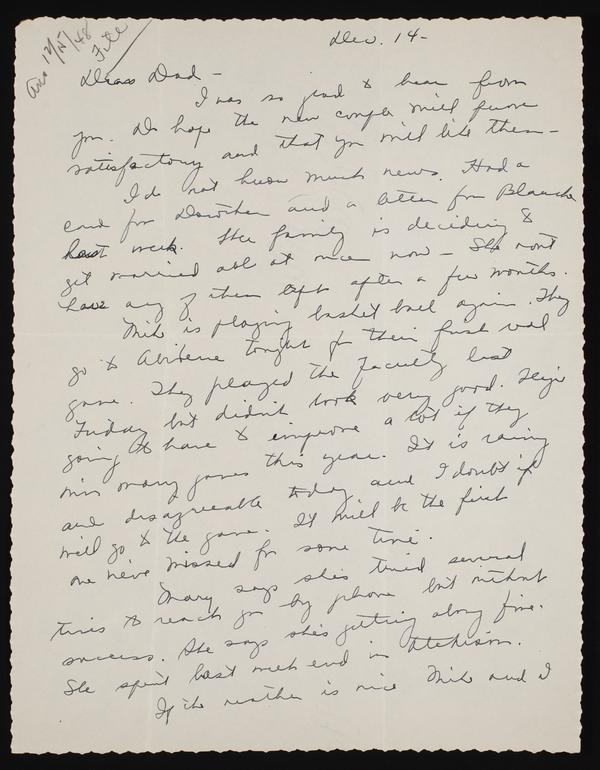 Ans 12/15/48
File
Dec. 14-
Dear Dad -
I was so glad to hear from
you. Do hope the new couple will prove
satisfactory and that you will like them -
I do not know much news. Had a
card from and a letter from Blanche
last week. The family is deciding to
get married all at once now - She won't
have any of them left after a few months.
Mike is playing basket ball again. They
go to Abilene tonight for their first real
game. They played the faculty last
Friday but didn't look very good. They're
going to have to improve a lot if they
win many games this year. It is rainy
and disagreeable today and I doubt if
will go to the game. It will be the first
one we've missed for some time.
Mary says she's tried several
times to reach you by phone but without
success. She says she's getting along fine.
She spent last week end in Atchison.
If the weather is nice Mike and I